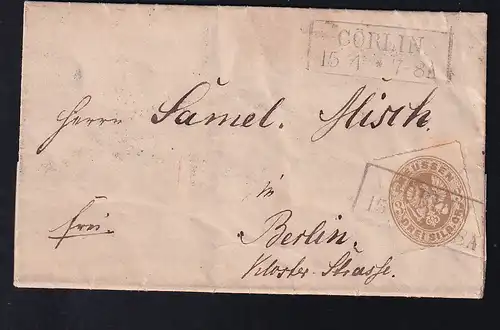 CÖRLIN
15 4 * 7-8A
Herrn Samel. Misch.
in
frei.
Berlin.
Kloster-Strasse.
PREUSSEN
DREI SILB.GR.
15
8A